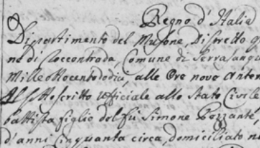 Regno d'Italia
Dipartimento del Musone, Distretto
ne di Roccontrada, Comune di Serra
Mille Ottocentododici, alle Ore nove Anten
sottoscritto Ufficiale allo Stato Civile
battista figlio del fù Simone
d'anni cinquanta circa, domiciliato